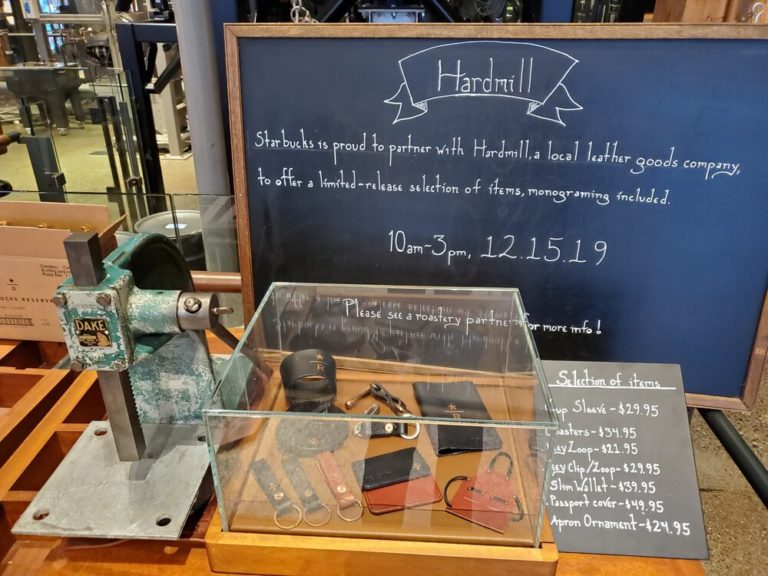 Hardmill
Starbucks is proud to partner with Hardmill, a local leather goods company,
to offer a limited-release selection of items, monograming included.
10am-3pm, 12.15.19
Please see a roastery partner for more info!
DAKE
Selection of items
Sleeve - $29.95
- $34.95
Zoop - $21.95
Clip/Zoop - $29.95
Slim Wallet - $39.95
Passport cover - $49.95
Apron Ornament - $24.95
R